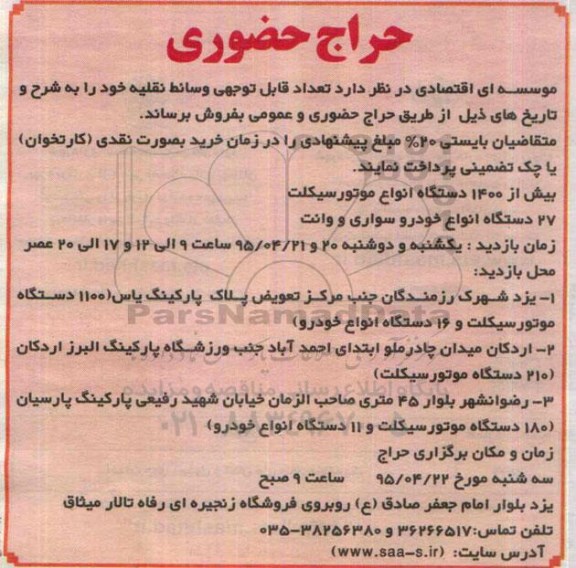 حراج حضوری
موسسه ای اقتصادی در نظر دارد تعداد قابل توجهی وسائط نقلیه خود را به شرح و
تاریخ های ذیل از طریق حراج حضوری و عمومی بفروش برساند.
متقاضیان بایستی ۲۰% مبلغ پیشنهادی را در زمان خرید بصورت نقدی (کارتخوان)
یا چک تضمینی پرداخت نمایند.
بیش از ۱۴۰۰ دستگاه انواع موتورسیکلت
۲۷ دستگاه انواع خودرو سواری و وانت
زمان بازدید : یکشنبه و دوشنبه ۲۰ و ۹۵/۰۴/۲۱ ساعت ۹ الی ۱۲ و ۱۷ الی ۲۰ عصر
محل بازدید:
۱- یزد شهرک رزمندگان جنب مرکز تعویض پلاک پارکینگ یاس(۱۱۰۰ دستگاه
موتورسیکلت و ۱۶ دستگاه انواع خودرو)
ParsNamadData
۲- اردکان میدان چادرملو ابتدای احمد آباد جنب ورزشگاه پارکینگ البرز اردکان
(۲۱۰ دستگاه موتورسیکلت)
پایگاه اطلاع رسانی مناقصه و مزایده
۳- رضوانشهر بلوار ۴۵ متری صاحب الزمان خیابان شهید رفیعی پارکینگ پارسیان
(۱۸۰ دستگاه موتورسیکلت و ۱۱ دستگاه انواع خودرو)
زمان و مکان برگزاری حراج
سه شنبه مورخ ۹۵/۰۴/۲۲ ساعت ۹ صبح
یزد بلوار امام جعفر صادق (ع) روبروی فروشگاه زنجیره ای رفاه تالار میثاق
تلفن تماس:۳۶۲۶۶۵۱۷ و ۳۸۲۵۶۳۸۰-۰۳۵
آدرس سایت: (www.saa-s.ir)